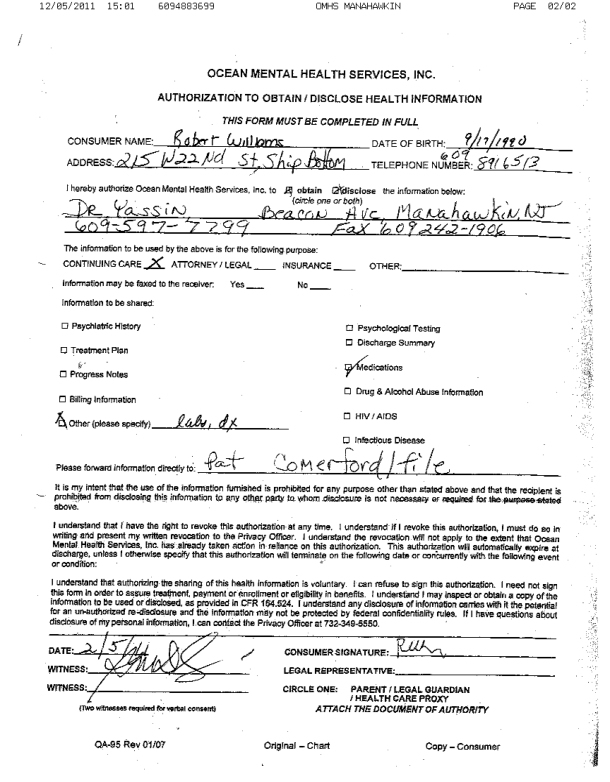 12/05/2011 15:01 6094883699 OMHS MANAHAWKIN PAGE 02/02
OCEAN MENTAL HEALTH SERVICES, INC.
AUTHORIZATION TO OBTAIN / DISCLOSE HEALTH INFORMATION
THIS FORM MUST BE COMPLETED IN FULL
CONSUMER NAME: Robert Williams DATE OF BIRTH: 9/17/1980
ADDRESS: 215 W 22 Nd St, Ship Bottom TELEPHONE NUMBER: 609 8916513
I hereby authorize Ocean Mental Health Services, Inc. to obtain disclose the information below:
(circle one or both)
DR Yassin Beacon Ave, Manahawkin, NJ
609-597-7299 Fax 609 242-1906
The information to be used by the above is for the following purpose:
CONTINUING CARE X ATTORNEY / LEGAL ____ INSURANCE ____ OTHER:
Information may be faxed to the receiver: Yes ____ No ____
Information to be shared:
☐ Psychiatric History ☐ Psychological Testing
☐ Discharge Summary
☐ Treatment Plan
☑ Medications
☐ Progress Notes
☐ Drug & Alcohol Abuse Information
☐ Billing Information
☒ Other (please specify) labs, dx ☐ HIV / AIDS
☐ Infectious Disease
Please forward information directly to: Pat Comerford / file
It is my intent that the use of the information furnished is prohibited for any purpose other than stated above and that the recipient is
prohibited from disclosing this information to any other party to whom disclosure is not necessary or required for the purpose stated
above.
I understand that I have the right to revoke this authorization at any time. I understand if I revoke this authorization, I must do so in
writing and present my written revocation to the Privacy Officer. I understand the revocation will not apply to the extent that Ocean
Mental Health Services, Inc. has already taken action in reliance on this authorization. This authorization will automatically expire at
discharge, unless I otherwise specify that this authorization will terminate on the following date or concurrently with the following event
or condition:
I understand that authorizing the sharing of this health information is voluntary. I can refuse to sign this authorization. I need not sign
this form in order to assure treatment, payment or enrollment or eligibility in benefits. I understand I may inspect or obtain a copy of the
information to be used or disclosed, as provided in CFR 164.524. I understand any disclosure of information carries with it the potential
for an un-authorized re-disclosure and the information may not be protected by federal confidentiality rules. If I have questions about
disclosure of my personal information, I can contact the Privacy Officer at 732-349-5550.
DATE: 2/5/ CONSUMER SIGNATURE:
WITNESS: LEGAL REPRESENTATIVE:
WITNESS: CIRCLE ONE: PARENT / LEGAL GUARDIAN
/ HEALTH CARE PROXY
(Two witnesses required for verbal consent) ATTACH THE DOCUMENT OF AUTHORITY
QA-95 Rev 01/07 Original – Chart Copy – Consumer